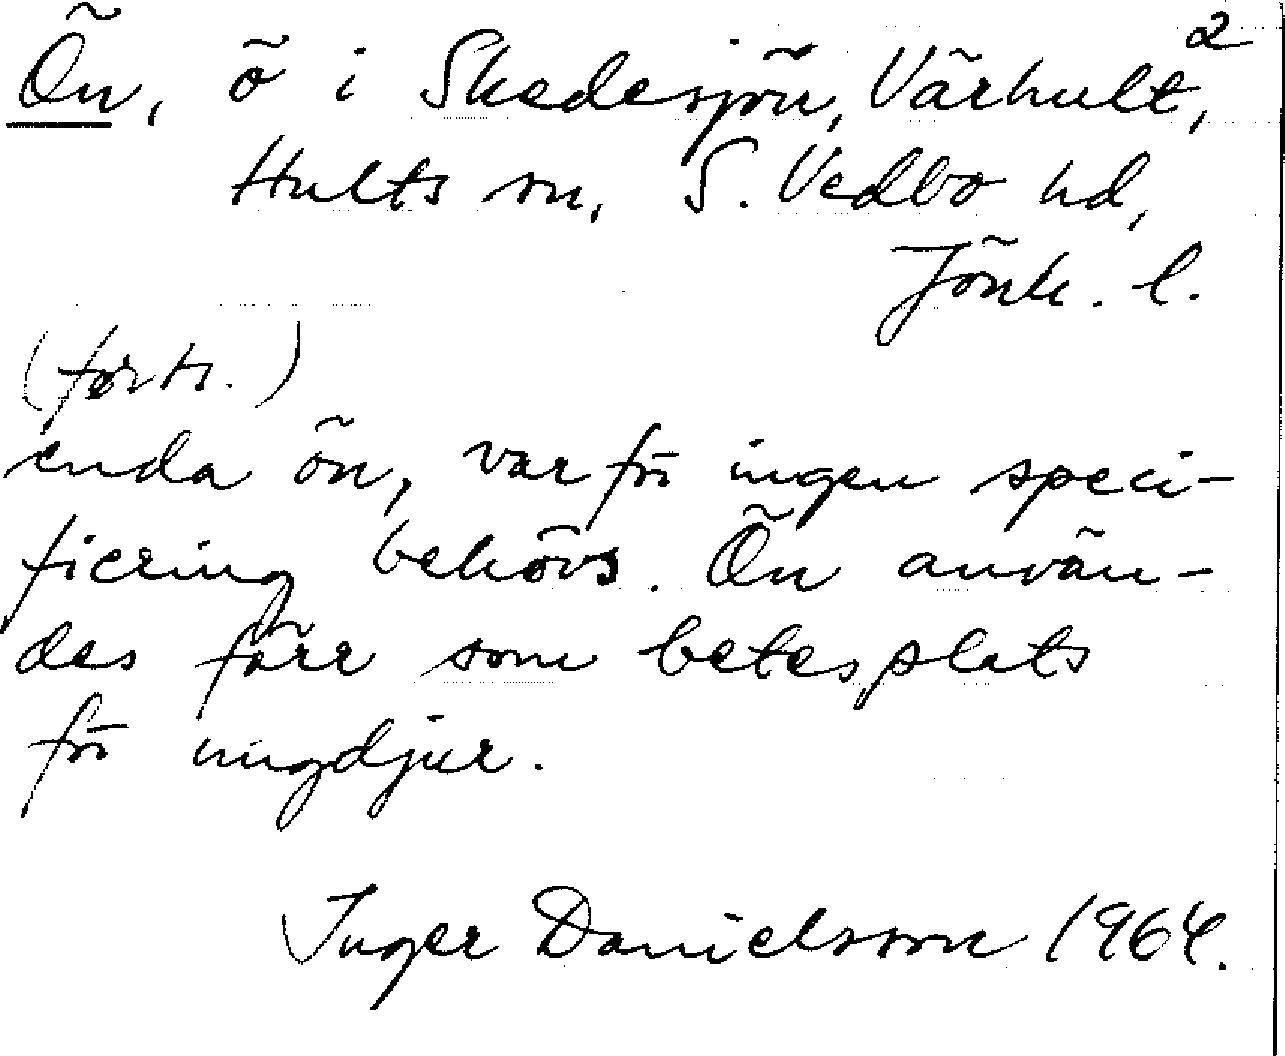 2
Ön, ö i Skedesjön, Värhult,
Hults sn, S. Vedbo hd,
Jönk. l.
(forts.)
enda ön, varför ingen speci-
ficering behövs. Ön använ-
des förr som betesplats
för ungdjur.
Inger Danielsson 1964.